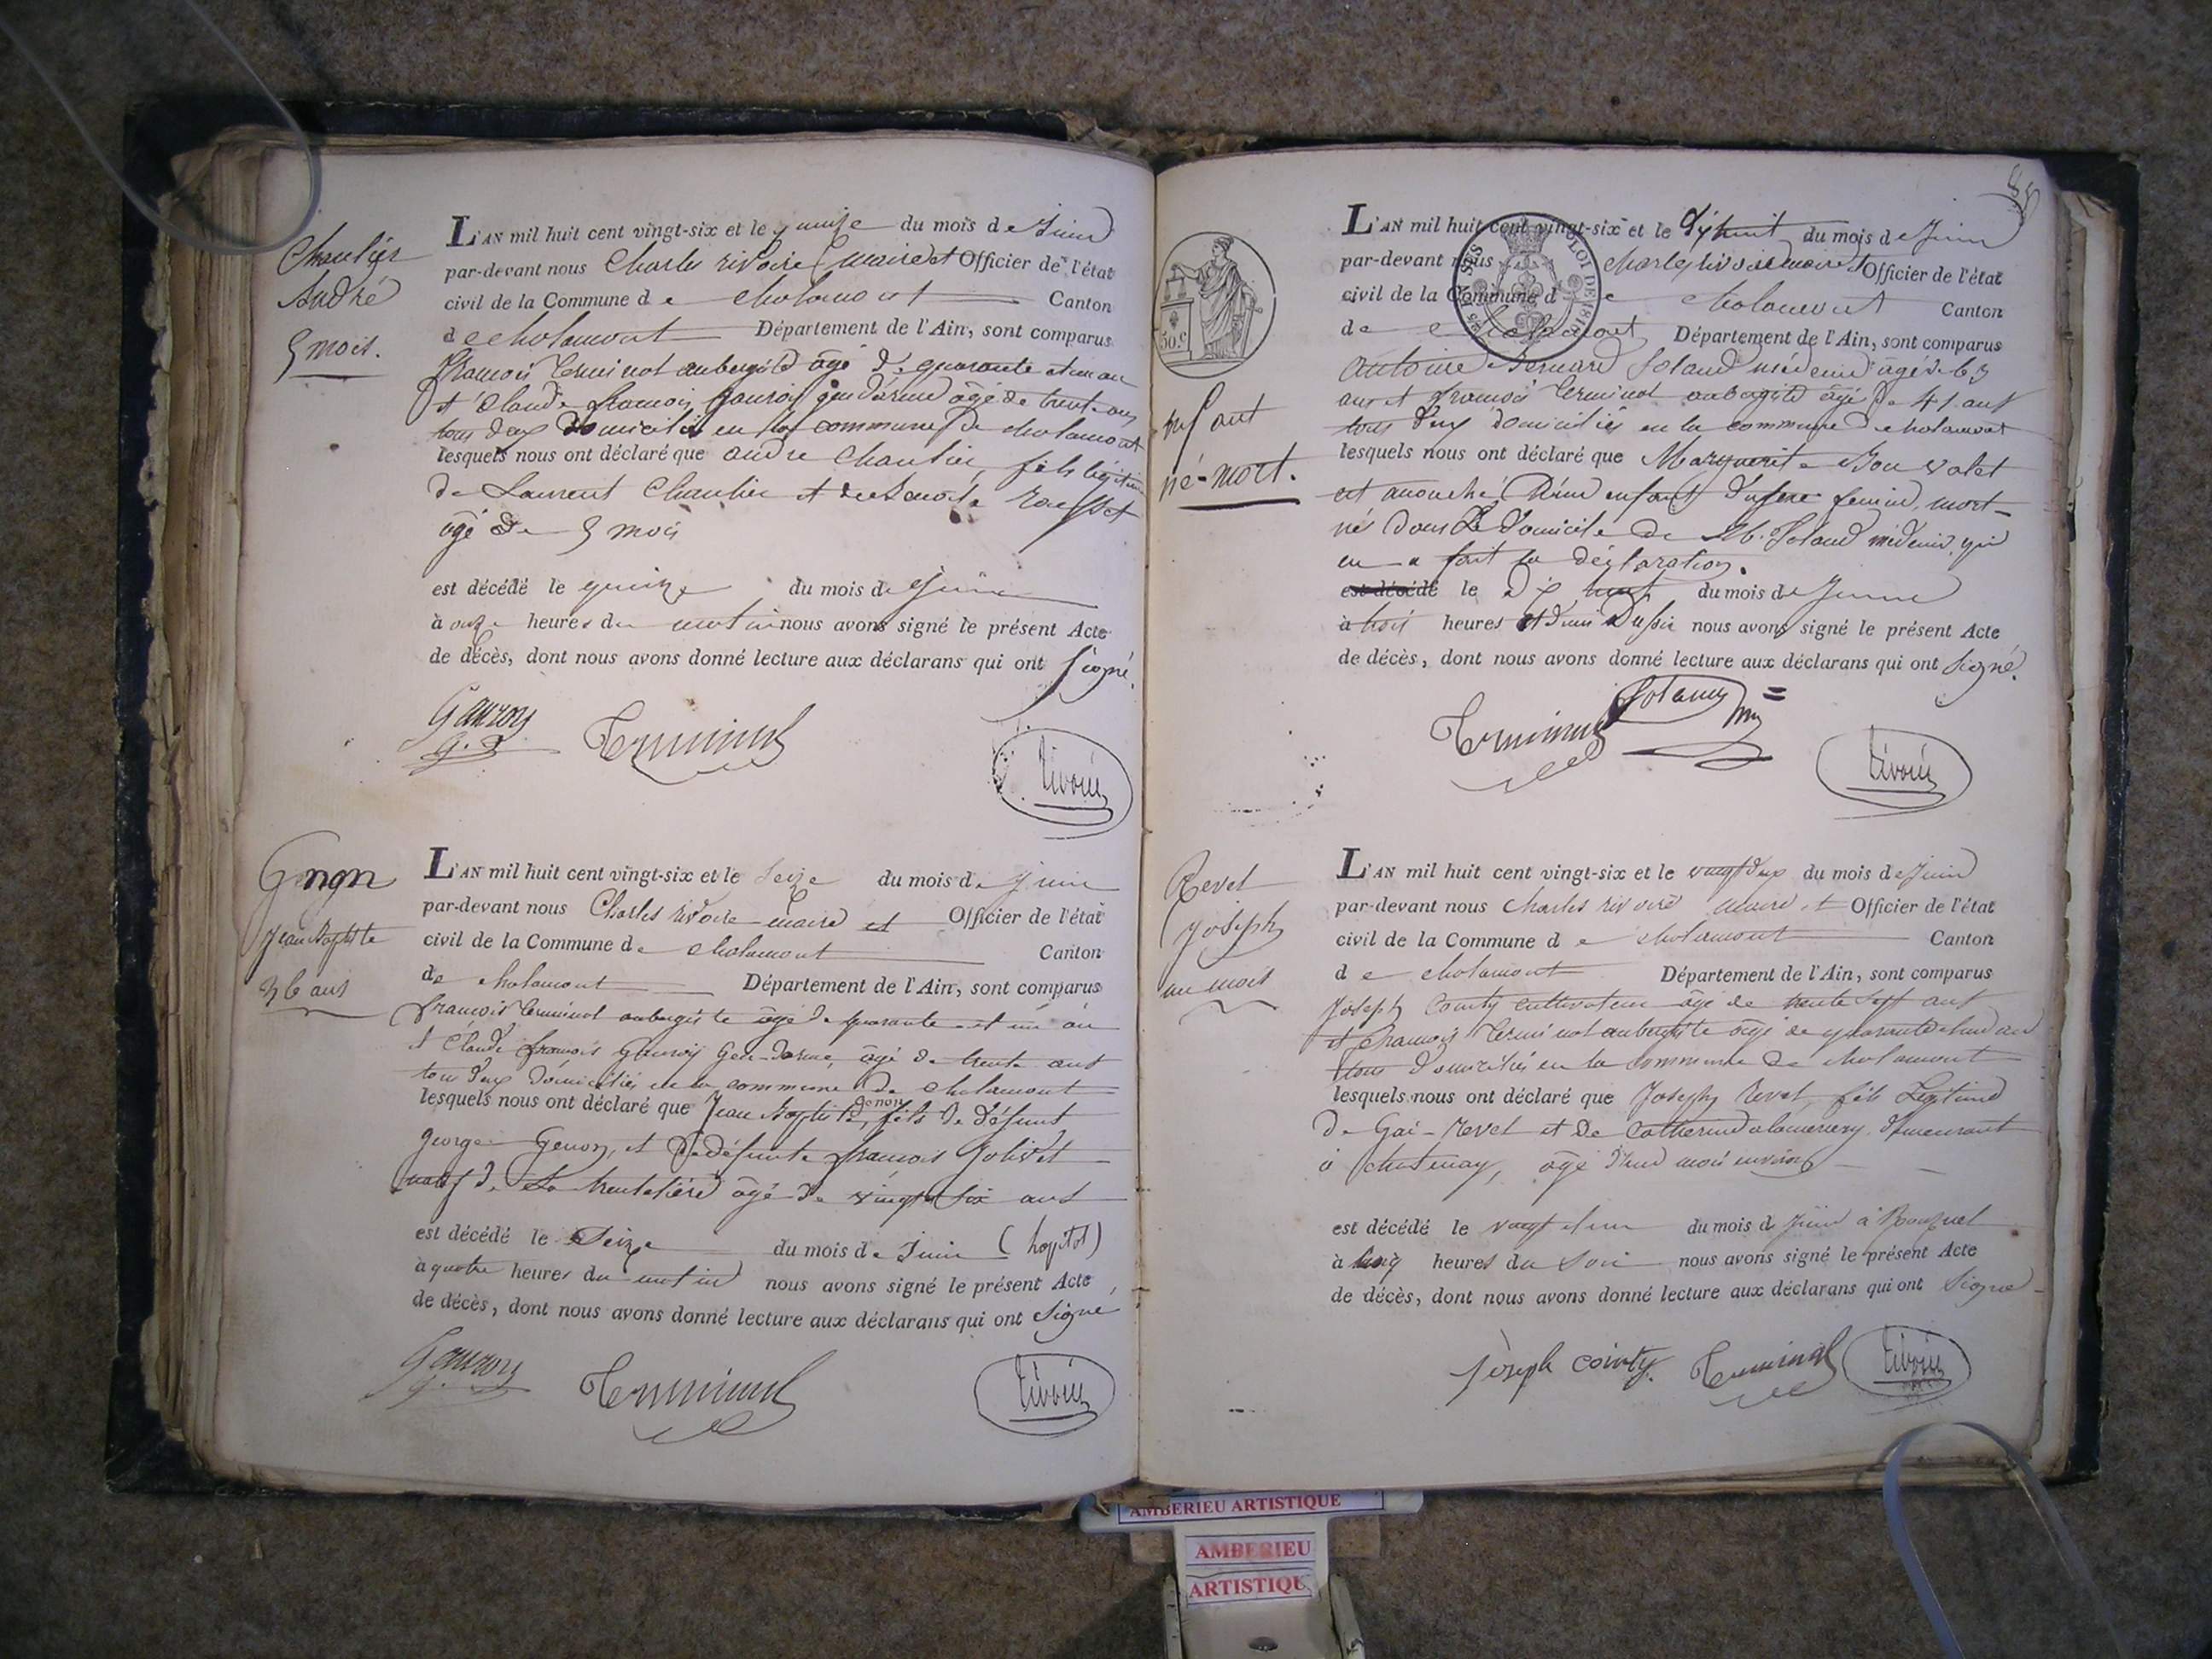 Chaulier
André
5 mois.
L'AN mil huit cent vingt-six et le quinze du mois de Juin
par-devant nous Charles rivoire Maire et Officier de l'état
civil de la Commune de cholamont Canton
de cholamont Département de l'Ain, sont comparus
François Terminot aubergiste âgé de quarante et un an
et Claude françois Gauroy gendarme âgé de trente ans
tous deux domiciliés en la commune de cholamont
lesquels nous ont déclaré que andré Chaulier, fils légitime
de Laurent Chaulier et de
âgé de 5 mois
est décédé le quinze du mois de Juin
à onze heures du matin nous avons signé le présent Acte
de décès, dont nous avons donné lecture aux déclarans qui ont signé.
Gauroy
g.d
Terminot
rivoire
Genon
Jean Baptiste
26 ans
L'AN mil huit cent vingt-six et le Seize du mois de Juin
par-devant nous Charles rivoire maire et Officier de l'état
civil de la Commune de cholamont Canton
de cholamont Département de l'Ain, sont comparus
François Terminot aubergiste âgé de quarante et un an
et Claude françois Gauroy Gen-darme, âgé de trente ans
tous deux domiciliés en la commune de cholamont
lesquels nous ont déclaré que Jean Baptiste genon, fils de défunt
George Genon, et de défunte françois Jolivet
natif de La âgé de vingt Six ans
est décédé le Seize du mois de Juin (hopital)
à quatre heures du matin nous avons signé le présent Acte
de décès, dont nous avons donné lecture aux déclarans qui ont signé
Gauroy
g.
Terminot
rivoire
50.c
enfant
né-mort.
L'AN mil huit cent vingt-six et le dixhuit du mois de Juin
par-devant nous Charles rivoire maire et Officier de l'état
civil de la Commune de cholamont Canton
de cholamont Département de l'Ain, sont comparus
antoine Bernard Soland médecin âgé de 63
ans et François Terminot aubergiste âgé de 41 ans
tous deux domiciliés en la commune de cholamont
lesquels nous ont déclaré que Marguerite
est accouché d'une enfant du sexe feminin, mort-
né dans le domicile de M. Soland médecin, qui
en a fait la déclaration.
est décédé le dix huit du mois de Juin
à trois heures et demi du soir nous avons signé le présent Acte
de décès, dont nous avons donné lecture aux déclarans qui ont signé.
Terminot
rivoire
Revel
joseph
un mois
L'AN mil huit cent vingt-six et le vingt deux du mois de Juin
par-devant nous Charles rivoire maire et Officier de l'état
civil de la Commune de cholamont Canton
de cholamont Département de l'Ain, sont comparus
Joseph Cointy cultivateur âgé de trente sept ans
et François Terminot aubergiste âgé de quarante et un an
tous domiciliés en la commune de cholamont
lesquels nous ont déclaré que Joseph Revel, fils Légitime
de Gai-revel et de Catherine demeurant
à chatenay, âgé d'un mois environ
est décédé le vingt et un du mois de Juin à
à cinq heures du Soir nous avons signé le présent Acte
de décès, dont nous avons donné lecture aux déclarans qui ont signé
joseph cointy
Terminot
rivoire
AMBERIEU ARTISTIQUE
AMBERIEU
ARTISTIQU